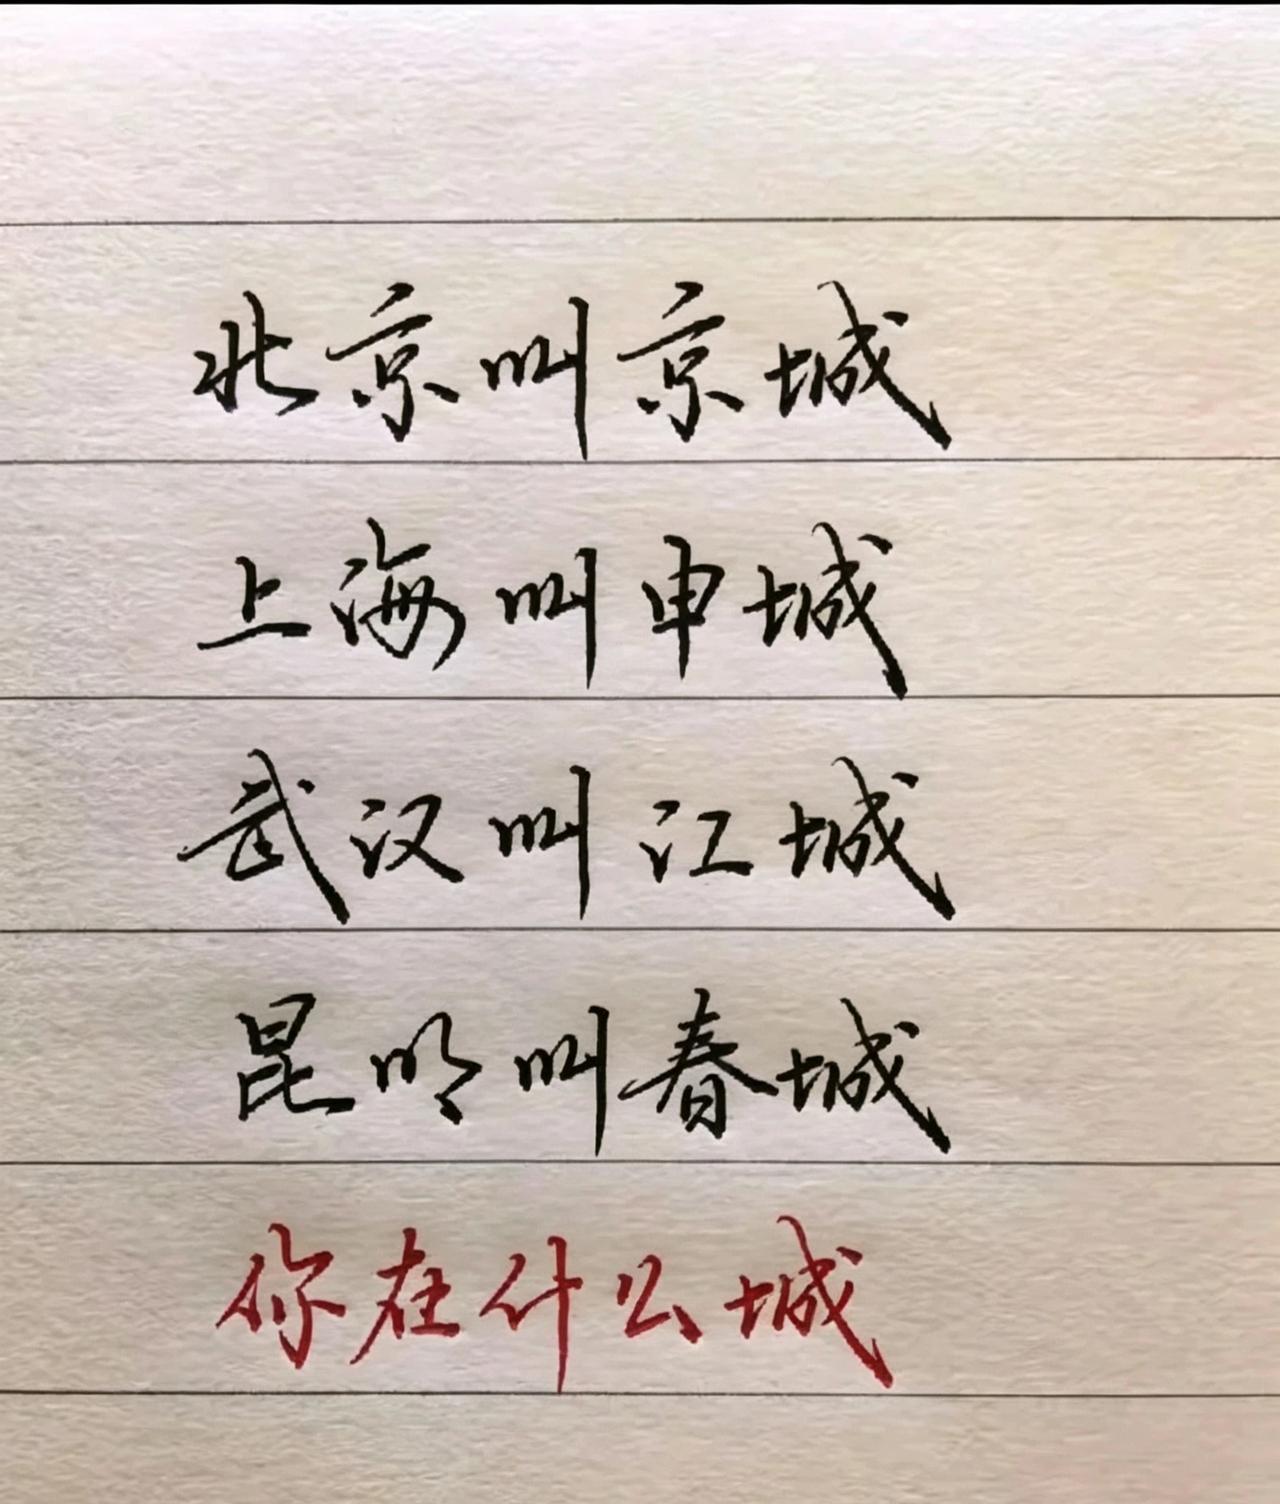 北京叫京城
上海叫申城
武汉叫江城
昆明叫春城
你在什么城